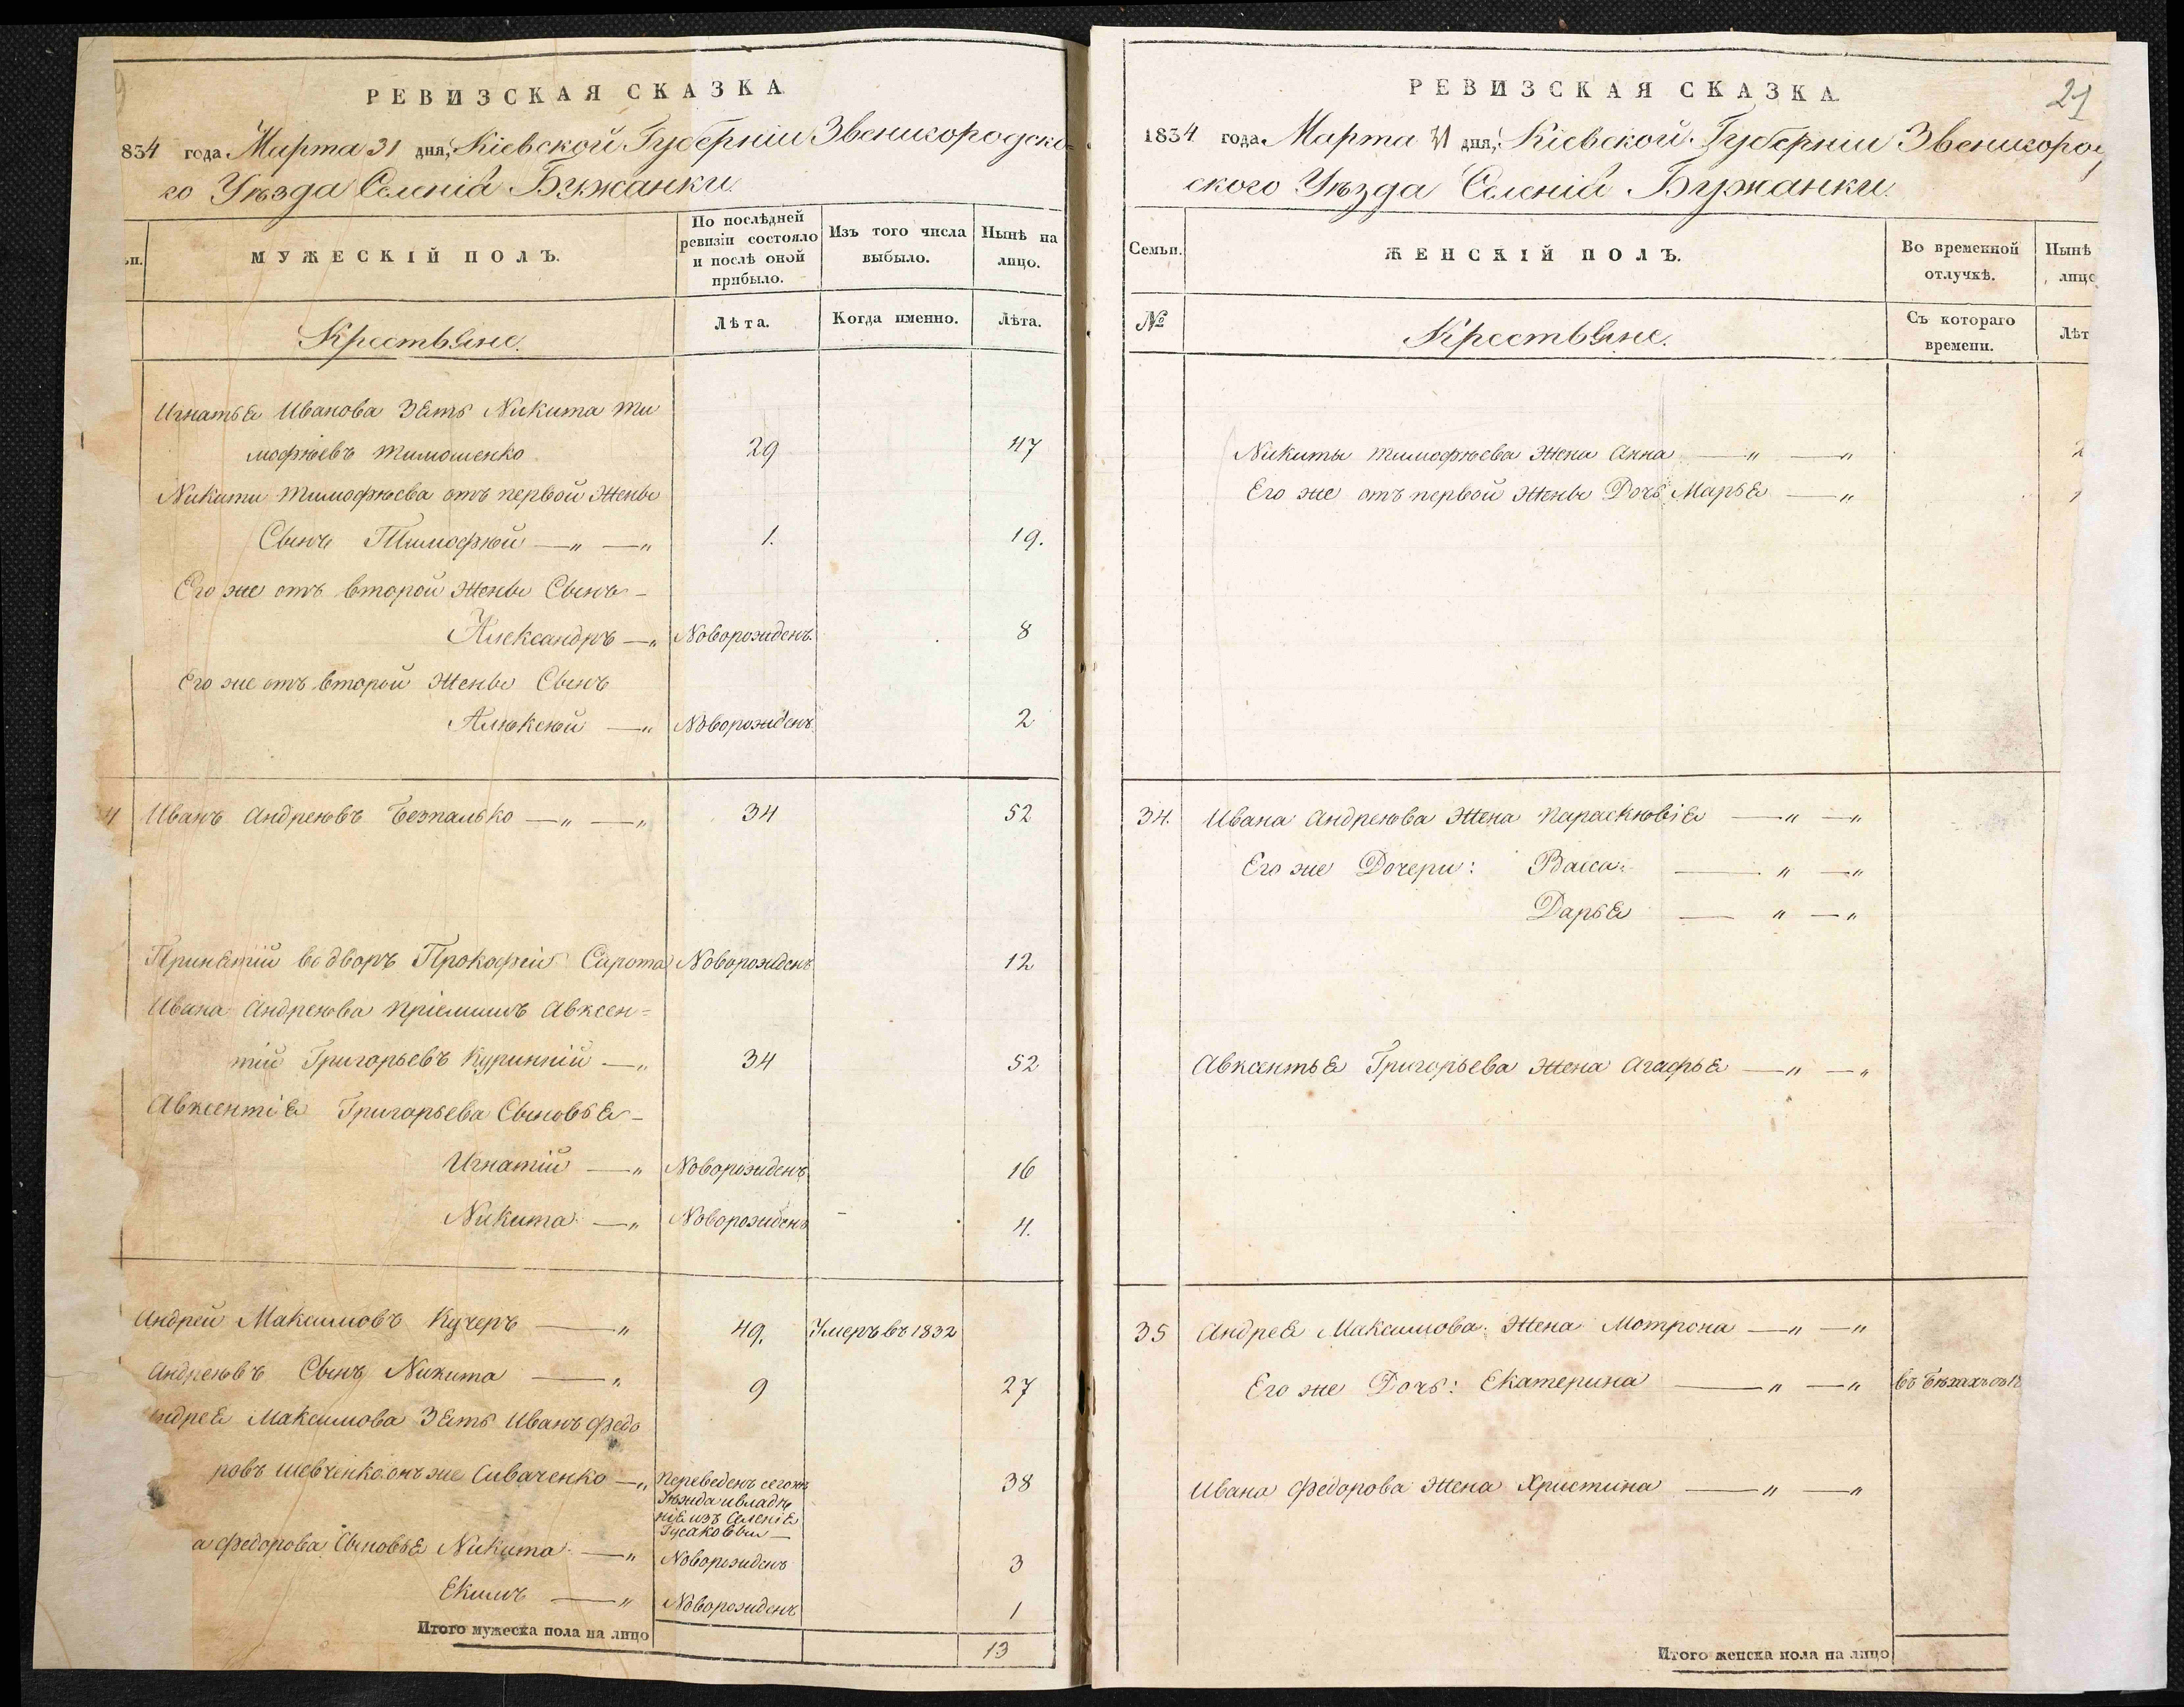 РЕВИЗСКАЯ СКАЗКА
834 года Марта 31 дня, Кіевской Губерніи Звенигородско-
го Уѣзда Селенія Бужанки.
МУЖЕСКІЙ ПОЛЪ.
По послѣдней ревизіи состояло и послѣ оной прибыло.
Изъ того числа выбыло.
Нынѣ на лицо.
Крестьяне.
Лѣта.
Когда именно.
Лѣта.
Игнатья Иванова Зять Никита Ти
мофѣевъ Тимошенко 29 47
Никити Тимофѣева отъ первой Жены
Сынъ Тимофѣй —„ —„ 1. 19.
Его же отъ второй Жены Сынъ -
Александръ —„ Новорожденъ 8
Его же отъ второй Жены Сынъ
Алѣксѣй —„ Новорожденъ 2
4 Иванъ Андреѣвъ Безпалько —„ —„ 34 52
Принятій во дворъ Прокофій Сирота Новорожденъ 12
Ивана Андреѣва Пріемишъ Авксен=
тій Григорьевъ Куринній —„ 34 52
Авксентія Григорьева Сыновья -
Игнатій —„ Новорожденъ 16
Никита —„ Новорожденъ 4.
Андрей Максимовъ Кучеръ —„ 49. Умеръ въ 1832
Андреѣвъ Сынъ Никита —„ 9 27
ндрея Максимова Зять Иванъ Федо
ровъ Шевченко онъ же Сиваченко —„ 38
Переведенъ сегожъ
Уѣзда и владѣ
нія изъ Селенія
Гусаковки —
а Федорова Сыновья Никита —„ Новорожденъ 3
Екимъ —„ Новорожденъ 1
Итого мужеска пола на лицо 13
21
РЕВИЗСКАЯ СКАЗКА.
1834 года Марта 31 дня, Кіевской Губерніи Звенигород
ского Уѣзда Селенія Бужанки.
Семьи.
ЖЕНСКІЙ ПОЛЪ.
Во временной отлучкѣ.
Нынѣ
лицо
№
Крестьяне.
Съ котораго времени.
Лѣт
Никиты Тимофѣева Жена Анна —„ —„ 2
Его же отъ первой Жены Дочь Марья —„
34. Ивана Андреѣва Жена Параскѣвія —„ —„
Его же Дочери: Васса —„ —„
Дарья —„ —„
Авксентья Григорьева Жена Агафья —„ —„
35 Андрея Максимова Жена Мотрона —„ —„
Его же Дочь: Екатерина —„ —„ въ бѣгахъ
Ивана Федорова Жена Христина —„ —„
Итого женска пола на лицо